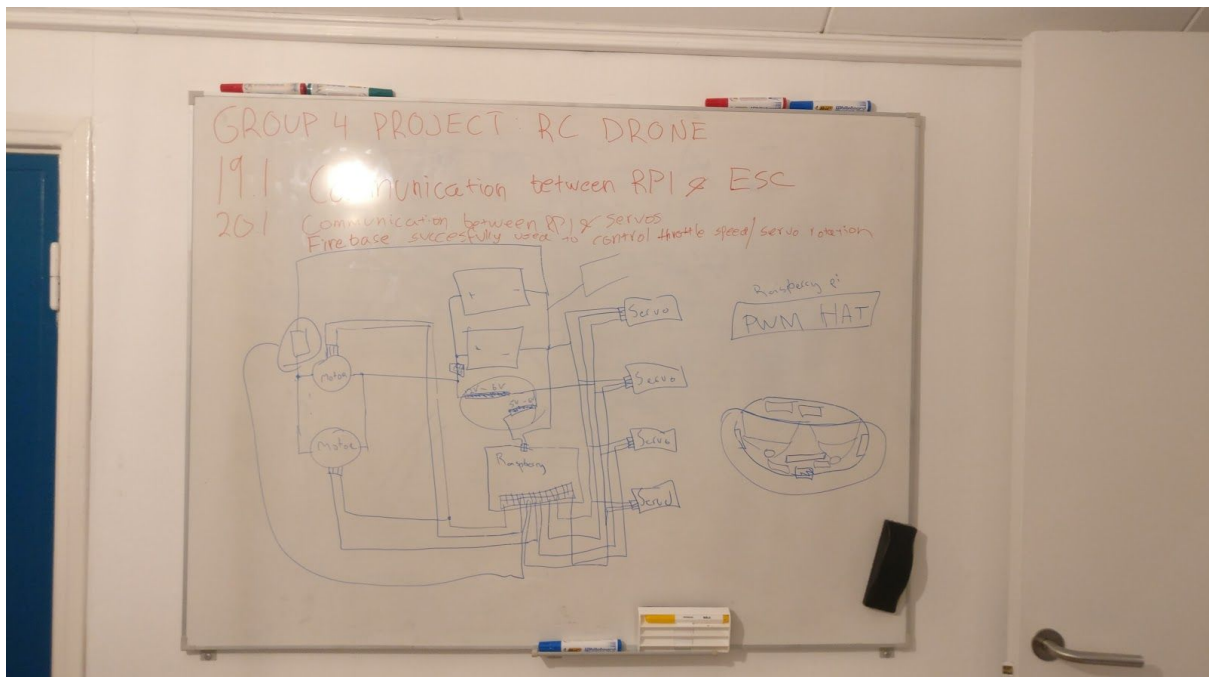 GROUP 4 PROJECT: RC DRONE
19.1 Communication between RPI & ESC
20.1 Communication between RPI & servos
Firebase succesfully used to control throttle speed/servo rotation
+ -
Raspberry pi
PWM HAT
Servo
Motor
Servo
Motor
Raspberry
Servo
Servo